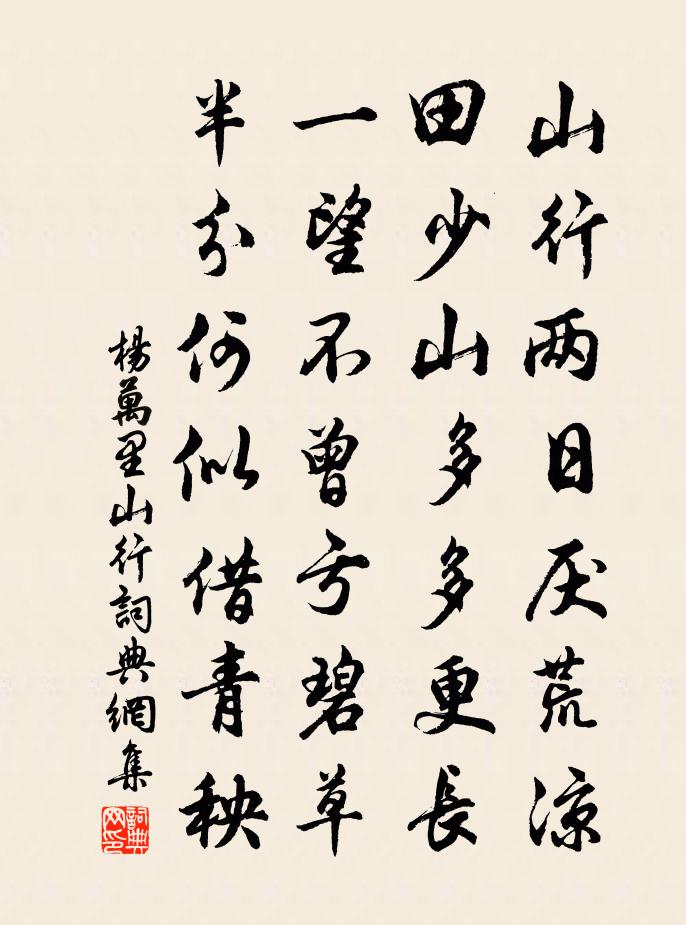 山行两日厌荒凉
田少山多多更長
一望不曾亏碧草
半分何似借青秧
楊萬里山行詞典網集
詞典網印